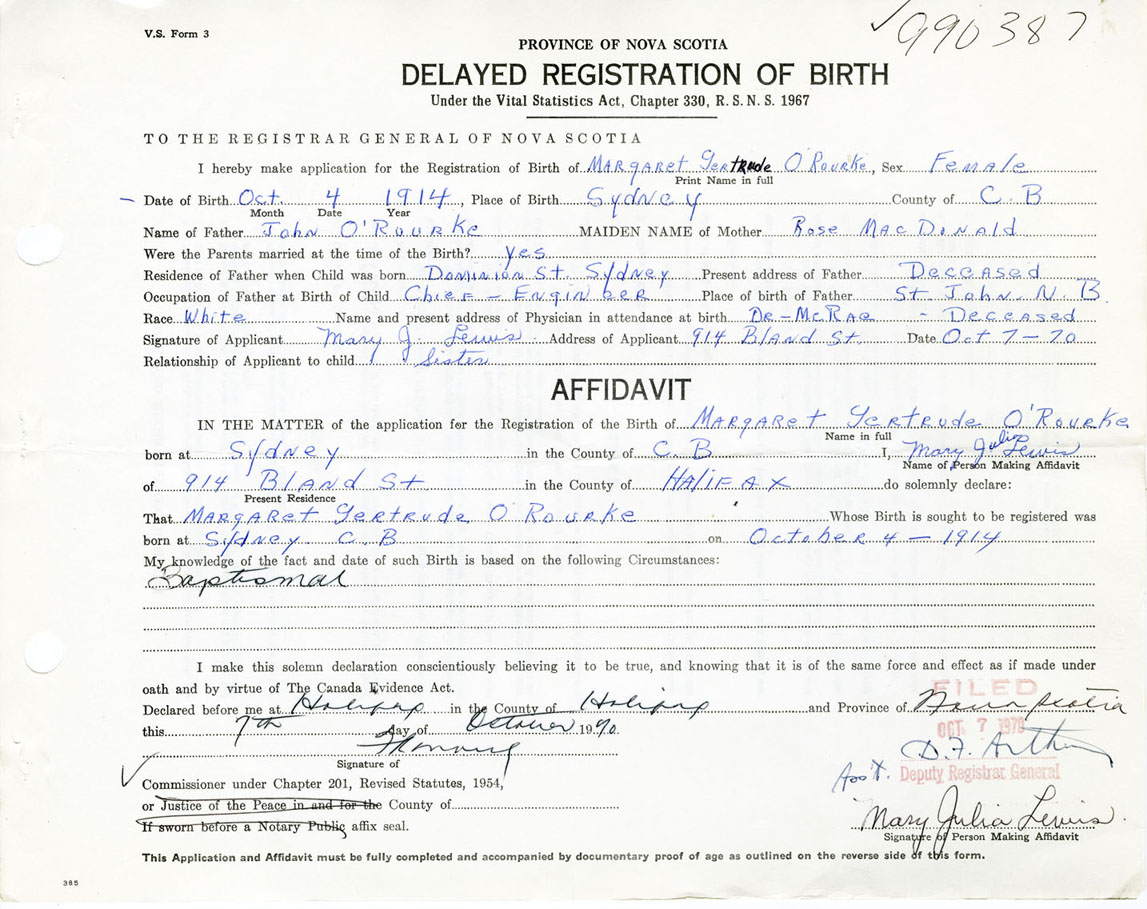 V.S. Form 3
990387
PROVINCE OF NOVA SCOTIA
DELAYED REGISTRATION OF BIRTH
Under the Vital Statistics Act, Chapter 330, R. S. N. S. 1967
TO THE REGISTRAR GENERAL OF NOVA SCOTIA
I hereby make application for the Registration of Birth of MARGARET GERTRUDE O'ROURKE, Sex FEMALE
Print Name in full
Date of Birth Oct. 4 1914, Place of Birth Sydney County of C. B
Month Date Year
Name of Father JOHN O'ROURKE MAIDEN NAME of Mother Rose MAC DONALD
Were the Parents married at the time of the Birth? Yes
Residence of Father when Child was born DOMINION St. Sydney Present address of Father DECEASED
Occupation of Father at Birth of Child CHIEF - ENGINEER Place of birth of Father St. JOHN. N. B.
Race White Name and present address of Physician in attendance at birth DR - McRAE - DECEASED
Signature of Applicant Mary J. Lewis Address of Applicant 914 BLAND St. Date Oct 7 - 70
Relationship of Applicant to child Sister
AFFIDAVIT
IN THE MATTER of the application for the Registration of the Birth of MARGARET GERTRUDE O'ROURKE
Name in full
born at Sydney in the County of C. B I, Mary Julia Lewis
Name of Person Making Affidavit
of 914 BLAND St in the County of HALIFAX do solemnly declare:
Present Residence
That MARGARET GERTRUDE O ROURKE Whose Birth is sought to be registered was
born at Sydney C. B on October 4 - 1914
My knowledge of the fact and date of such Birth is based on the following Circumstances:
Baptismal
I make this solemn declaration conscientiously believing it to be true, and knowing that it is of the same force and effect as if made under
oath and by virtue of The Canada Evidence Act.
Declared before me at Halifax in the County of Halifax and Province of Nova Scotia
this 7th day of October 1970.
FILED
OCT 7 1970
Signature of
Ass't. Deputy Registrar General
Commissioner under Chapter 201, Revised Statutes, 1954,
or Justice of the Peace in and for the County of
If sworn before a Notary Public affix seal.
Mary Julia Lewis
Signature of Person Making Affidavit
This Application and Affidavit must be fully completed and accompanied by documentary proof of age as outlined on the reverse side of this form.
385